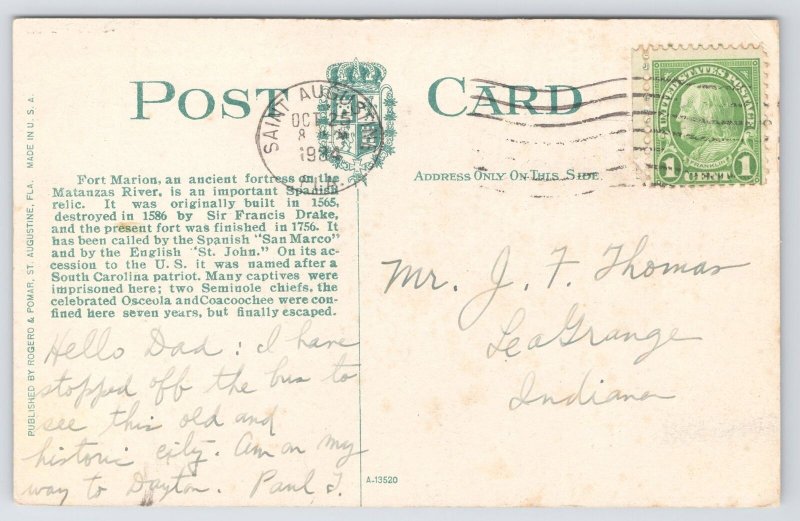 POST CARD
SAINT AUGUSTINE
OCT 25
8
1934
FLA.
UNITED STATES POSTAGE
FRANKLIN
1 CENT 1
ADDRESS ONLY ON THIS SIDE
MADE IN U. S. A.
PUBLISHED BY ROGERO & POMAR, ST. AUGUSTINE, FLA.
Fort Marion, an ancient fortress on the
Matanzas River, is an important Spanish
relic. It was originally built in 1565,
destroyed in 1586 by Sir Francis Drake,
and the present fort was finished in 1756. It
has been called by the Spanish "San Marco"
and by the English "St. John." On its ac-
cession to the U. S. it was named after a
South Carolina patriot. Many captives were
imprisoned here; two Seminole chiefs, the
celebrated Osceola and Coacoochee were con-
fined here seven years, but finally escaped.
Hello Dad: I have
stopped off the bus to
see this old and
historic city. Am on my
way to Dayton. Paul J.
Mr. J. F. Thomas
LeaGrange
Indiana
A-13520